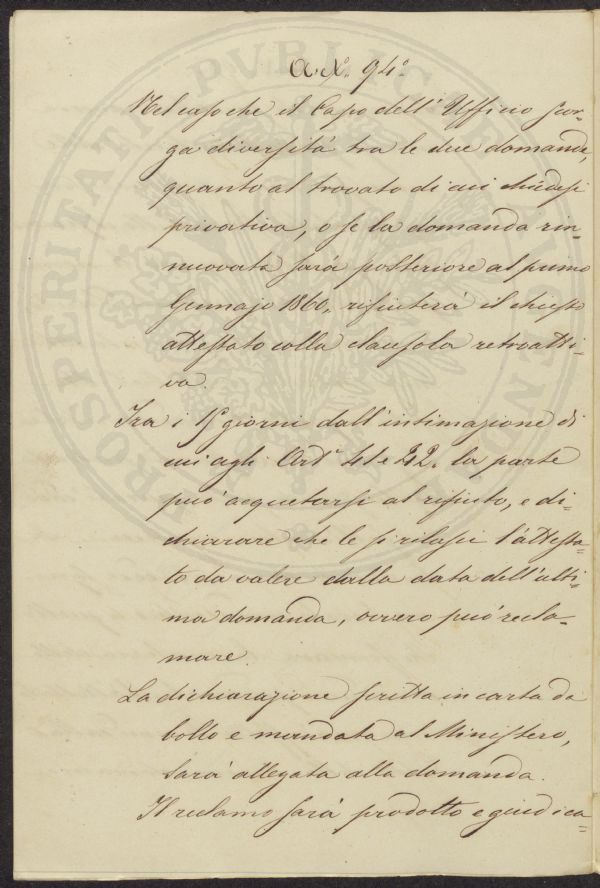 A. N. 94.
Nel caso che il Capo dell'Uffizio scor=
ga diversità tra le due domande,
quanto al trovato di cui chiedesi
privativa, o se la domanda rin=
nuovata sarà posteriore al primo
Gennajo 1860, rifiuterà il chiesto
attestato colla clausola retroatti=
va.
Tra i 15 giorni dall'intimazione di
cui agli Art. 41 e 42. la parte
può acquetarsi al rifiuto, e di=
chiarare che le si rilasci l'attesta=
to da valere dalla data dell'ulti=
ma domanda, ovvero può recla=
mare.
La dichiarazione scritta in carta da
bollo e mandata al Ministero,
sarà allegata alla domanda.
Il reclamo sarà prodotto e giudica=
PROSPERITATI PVBLICAE AVGENDAE